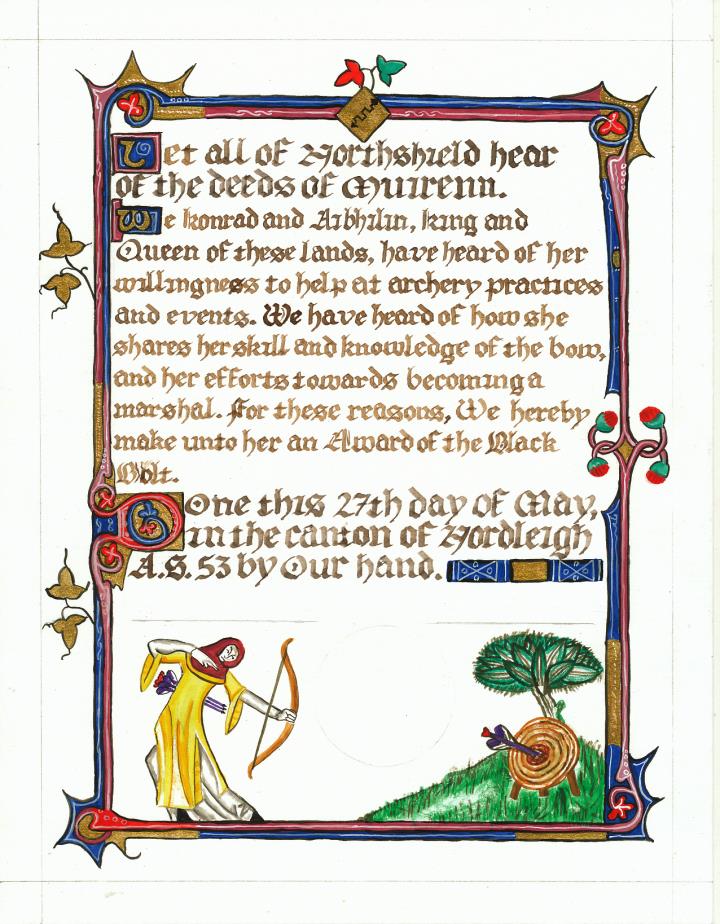 Let all of Northshield hear
of the deeds of Muirenn.
We Konrad and Aibhilin, King and
Queen of these lands, have heard of her
willingness to help at archery practices
and events. We have heard of how she
shares her skill and knowledge of the bow,
and her efforts towards becoming a
marshal. For these reasons, We hereby
make unto her an Award of the Black
Bolt.
Done this 27th day of May,
in the canton of Nordleigh
A.S. 53 by Our hand.